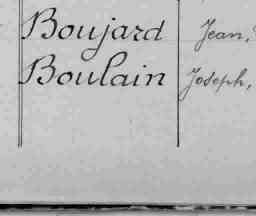 Boujard Jean,
Boulain Joseph,